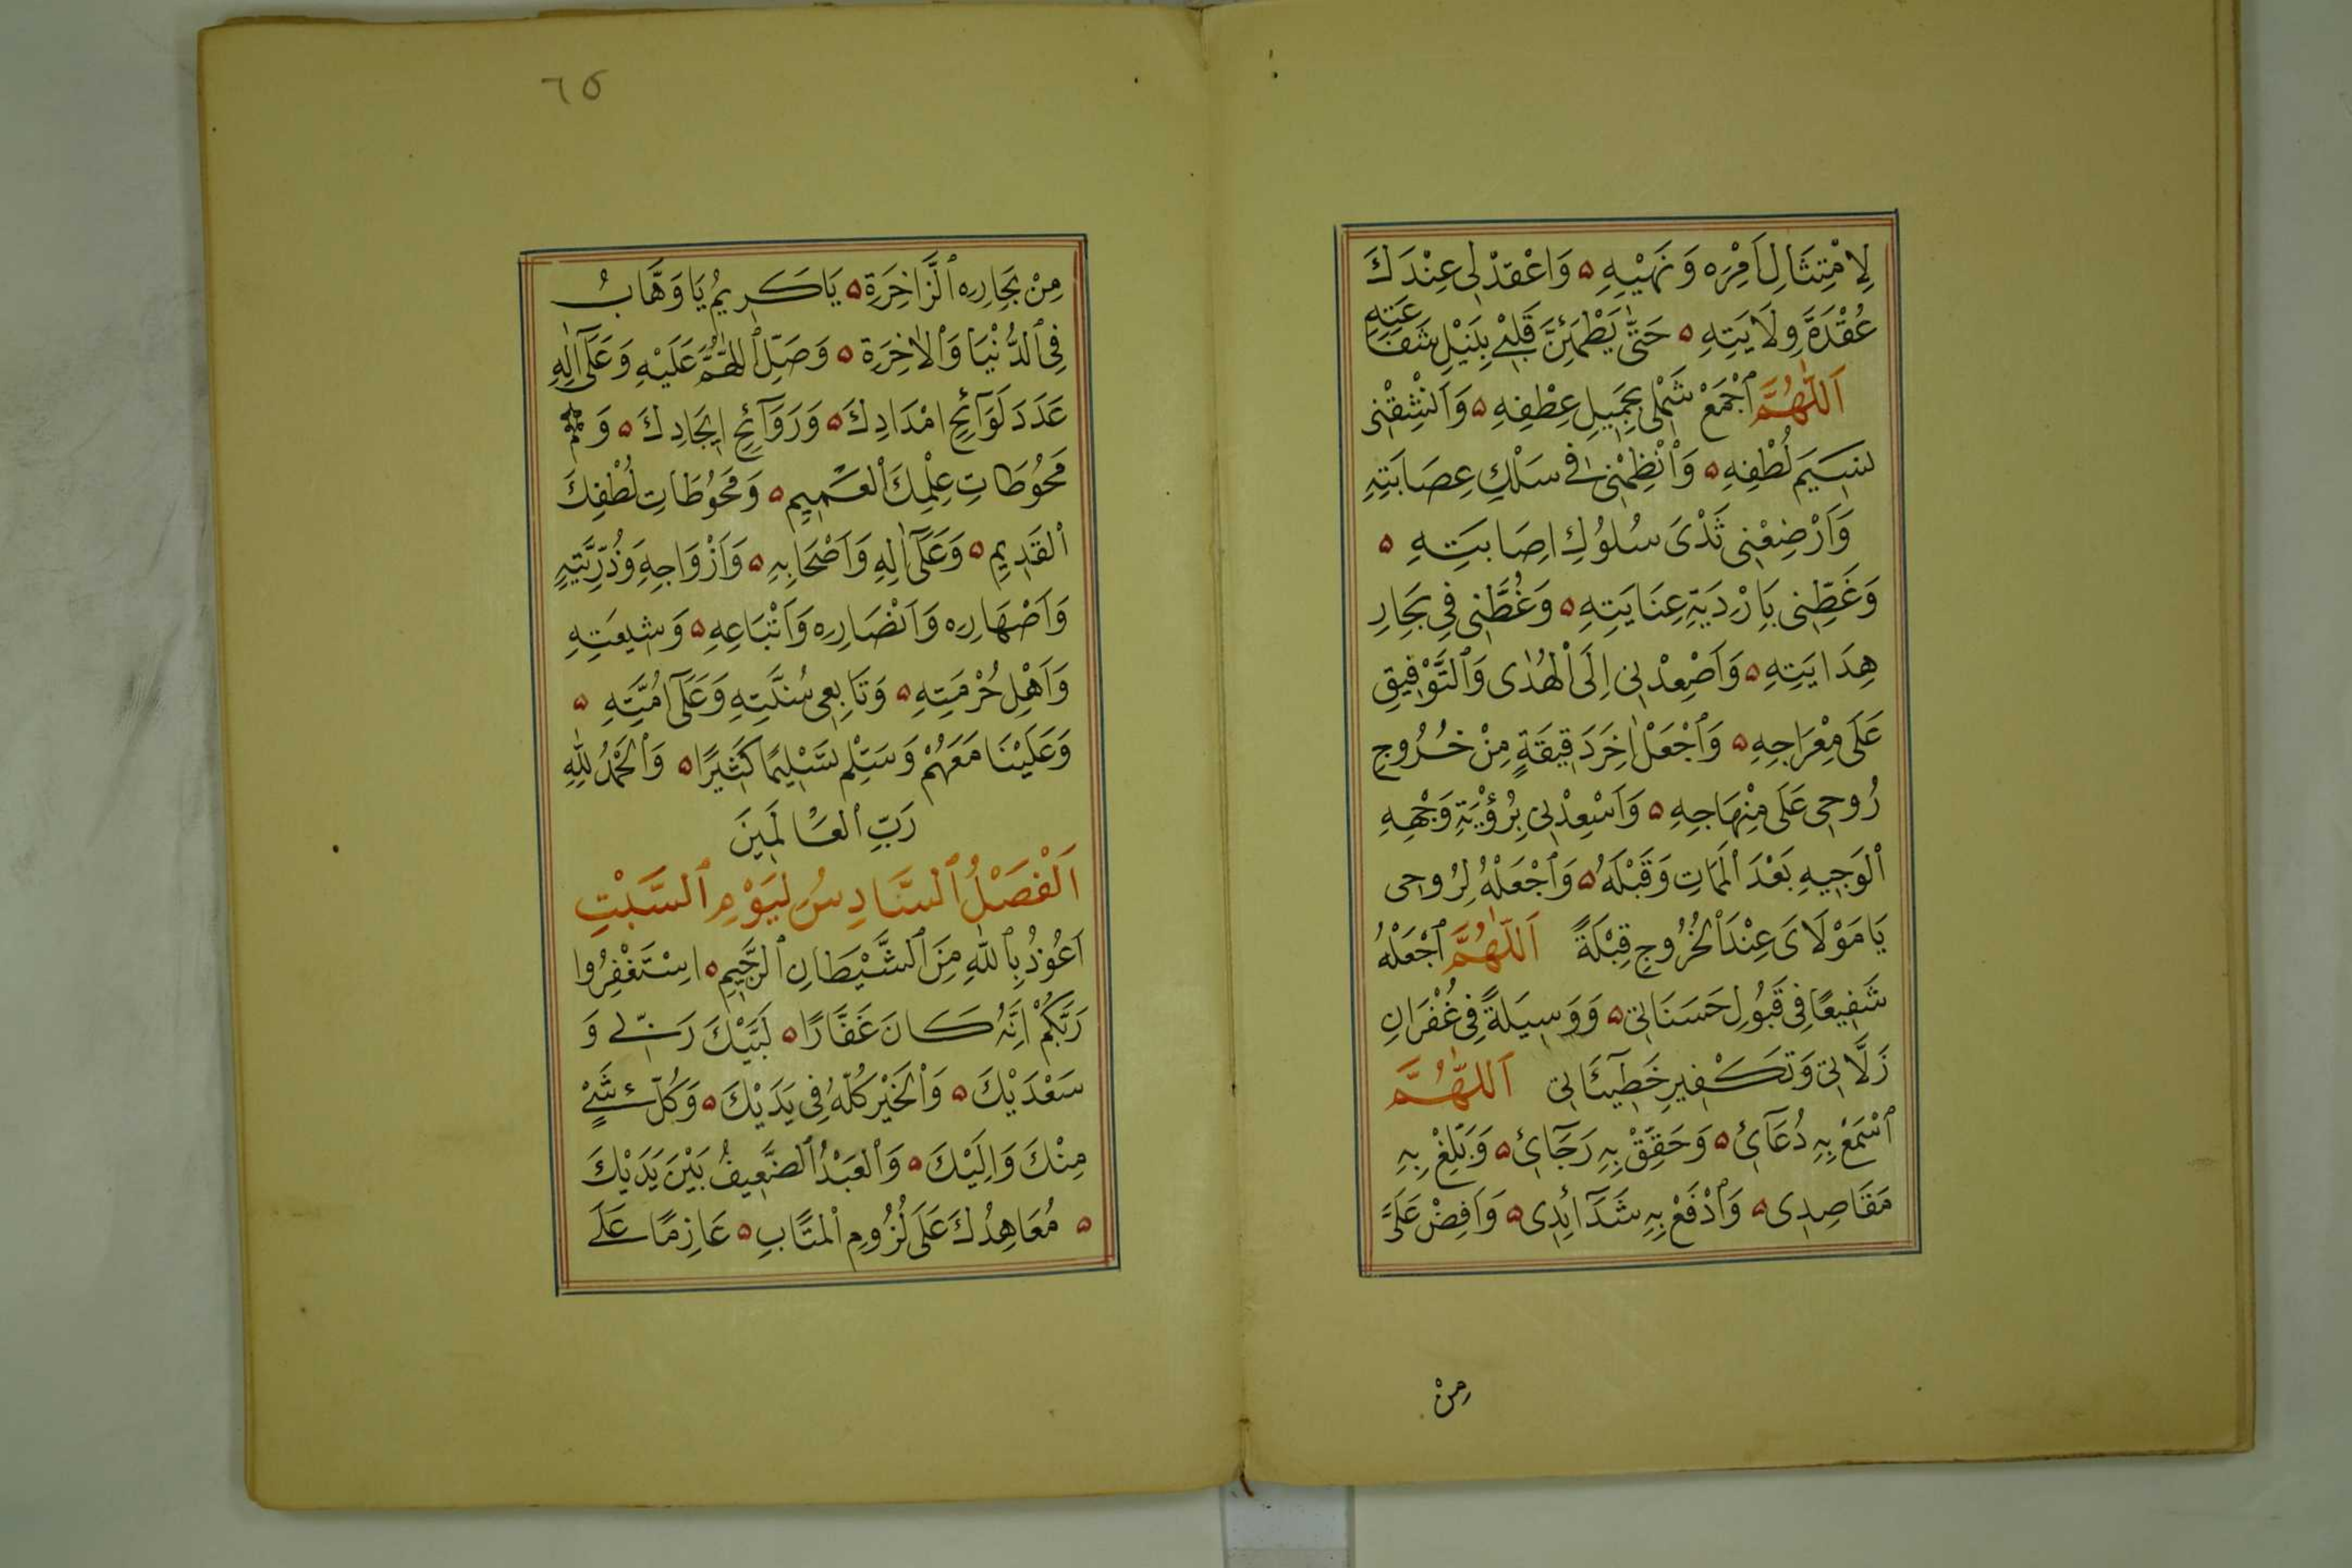 لِامْتِثَالِ اَمْرِهِ وَنَهْيِهِ ۵ وَاعْقِدْ لِى عِنْدَكَ
عُقْدَةَ وِلَايَتِهِ ۵ حَتّٰى يَطْمَئِنَّ قَلْبِى بِنَيْلِ شَفَاعَتِهِ
اَللّٰهُمَّ ٱجْمَعْ شَمْلِى بِجَمِيلِ عِطْفِهِ ۵ وَاَنْشِقْنِى
نَسِيَم لُطْفِهِ ۵ وَٱنْظِمْنِى فِى سَلْكِ عِصَابَتِهِ
وَاَرْضِعْنِى ثَدْىَ سُلُوُكِ اِصَابَتِهِ ۵
وَغَطِّنِى بِاَرْدِيَةِ عِنَايَتِهِ ۵ وَغُطَّنِى فِى بِحَارِ
هِدَايَتِهِ ۵ وَاَصْعِدْنِى اِلَى ٱلْهُدٰى وَٱلتَّوْفِيقِ
عَلَى مِعْرَاجِهِ ۵ وَٱجْعَلْ اٰخِرَ دَقِيقَةٍ مِنْ خُرُوجِ
رُوحِى عَلَى مِنْهَاجِهِ ۵ وَاَسْعِدْنِى بِرُؤْيَةِ وَجْهِهِ
ٱلْوَجِيهِ بَعْدَ ٱلْمَمَاتِ وَقَبْلَهُ ۵ وَٱجْعَلْهُ لِرُوحِى
يَا مَوْلَاىَ عِنْدَ ٱلْخُرُوجِ قِبْلَةً اَللّٰهُمَّ ٱجْعَلْهُ
شَفِيعًا فِى قَبُولِ حَسَنَاتِى ۵ وَوَسِيلَةً فِى غُفْرَانِ
زَلَّاتِى وَتَكْفِيرِ خَطِيئَاتِى اَللّٰهُمَّ
ٱسْمَعْ بِهِ دُعَآئِ ۵ وَحَقِّقْ بِهِ رَجَآئِ ۵ وَبَلِّغْ بِهِ
مَقَاصِدِى ۵ وَٱدْفَعْ بِهِ شَدَآئِدِى ۵ وَاَفِضْ عَلَىَّ
مِنْ
٦٥
مِنْ بِحَارِهِ ٱلزَّاخِرَةِ ۵ يَا كَرِيمُ يَا وَهَّابُ
فِى ٱلدُّنْيَا وَٱلْاٰخِرَةِ ۵ وَصَلِّ ٱللّٰهُمَّ عَلَيْهِ وَعَلَىٓ اٰلِهِ
عَدَدَ لَوَآئِحِ اِمْدَادِكَ ۵ وَرَوَآئِحِ اِيجَادِكَ ۵ وَ
مَحُوُطَاتِ عِلْمِكَ ٱلْعَمِيمِ ۵ وَمَحُوُظَاتِ لُطْفِكَ
ٱلْقَدِيمِ ۵ وَعَلَىٓ اٰلِهِ وَاَصْحَابِهِ ۵ وَاَزْوَاجِهِ وَذُرِّيَّتِهِ
وَاَصْهَارِهِ وَاَنْصَارِهِ وَاَتْبَاعِهِ ۵ وَشِيعَتِهِ
وَاَهْلِ حُرْمَتِهِ ۵ وَتَابِعِى سُنَّتِهِ وَعَلَىٓ اُمَّتِهِ ۵
وَعَلَيْنَا مَعَهُمْ وَسَلِّمْ تَسْلِيمًا كَثِيرًا ۵ وَٱلْحَمْدُ لِلّٰهِ
رَبِّ ٱلْعَالَمِينَ
اَلْفَصْلُ ٱلسَّادِسُ لِيَوْمِ ٱلسَّبْتِ
اَعُوُذُ بِٱللّٰهِ مِنَ ٱلشَّيْطَانِ ٱلرَّجِيمِ ۵ اِسْتَغْفِرُوا
رَبَّكُمْ اِنَّهُ كَانَ غَفَّارًا ۵ لَبَّيْكَ رَبِّى وَ
سَعْدَيْكَ ۵ وَٱلْخَيْرُ كُلُّهُ فِى يَدَيْكَ ۵ وَكُلُّ شَىْءٍ
مِنْكَ وَاِلَيْكَ ۵ وَٱلْعَبْدُ ٱلضَّعِيفُ بَيْنَ يَدَيْكَ
۵ مُعَاهِدُكَ عَلَى لُزُومِ ٱلْمَتَابِ ۵ عَازِمًا عَلَى